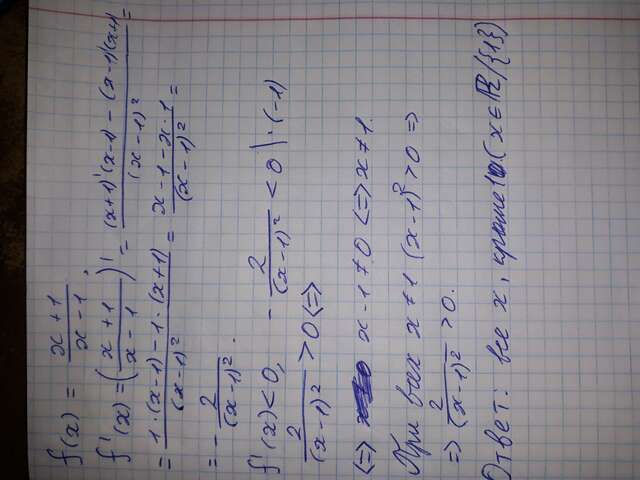 f(x) = (x+1)/(x-1),
f'(x) = ((x+1)/(x-1))' = ((x+1)'(x-1) - (x-1)'(x+1))/(x-1)² =
= (1·(x-1) - 1·(x+1))/(x-1)² = (x-1-x·1)/(x-1)² =
= - 2/(x-1)².
f'(x) < 0, - 2/(x-1)² < 0 | ·(-1)
2/(x-1)² > 0 <=>
<=> x-1 ≠ 0 <=> x ≠ 1.
При всех x ≠ 1 (x-1)² > 0 =>
=> 2/(x-1)² > 0.
Ответ: все x, кроме 1 (x ∈ ℝ/{1})